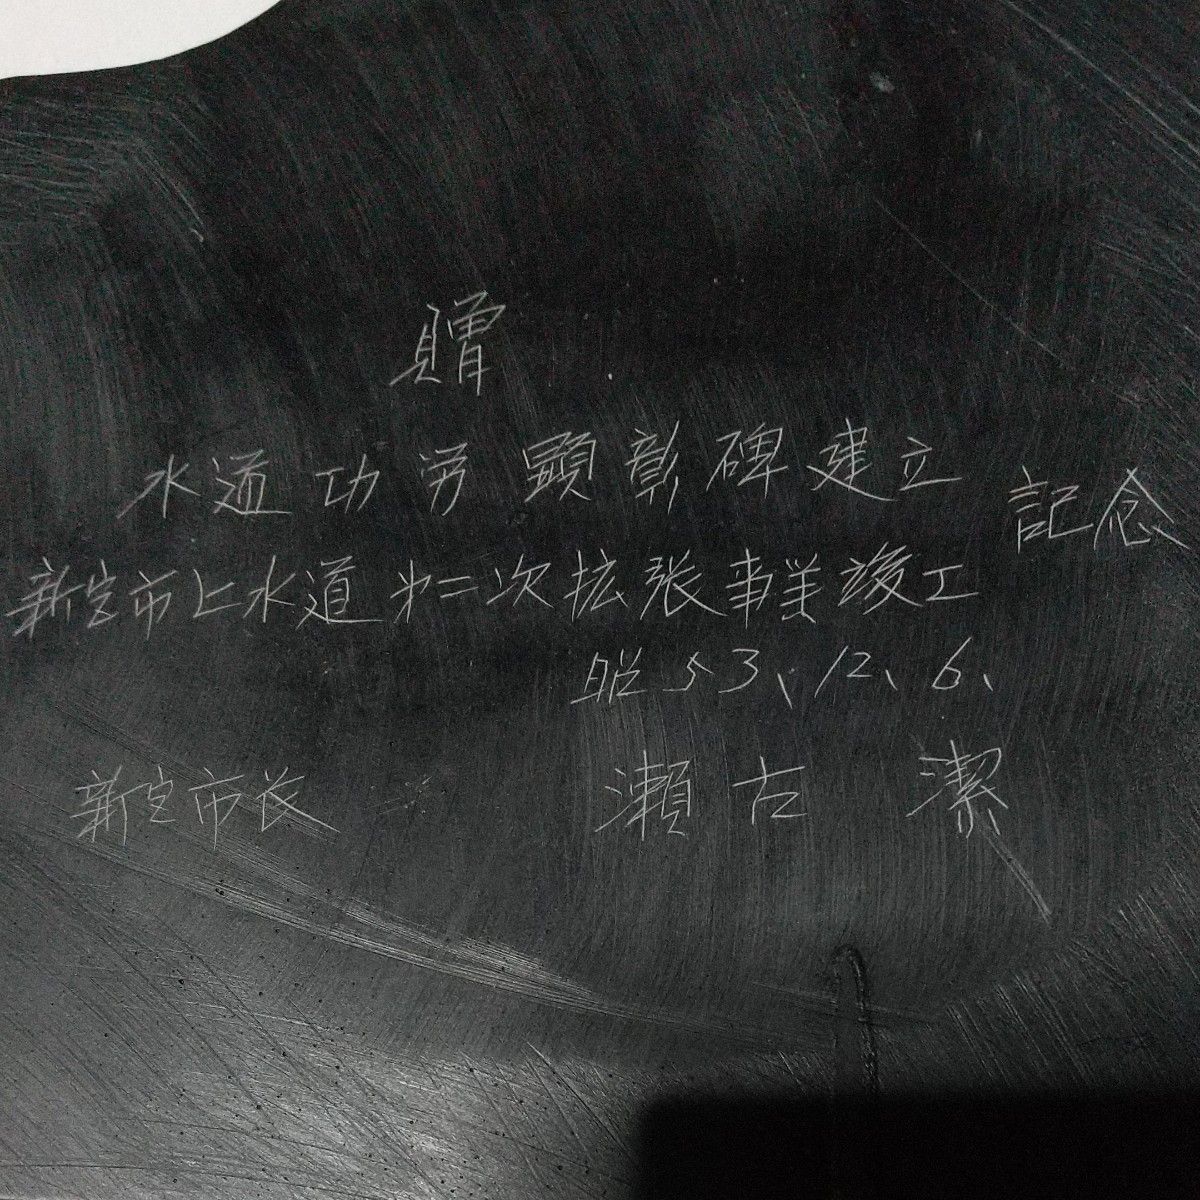 贈
水道功労顕彰碑建立
記念
新宮市上水道才二次拡張事業竣工
昭53、12、6、
新宮市長 瀬古 潔